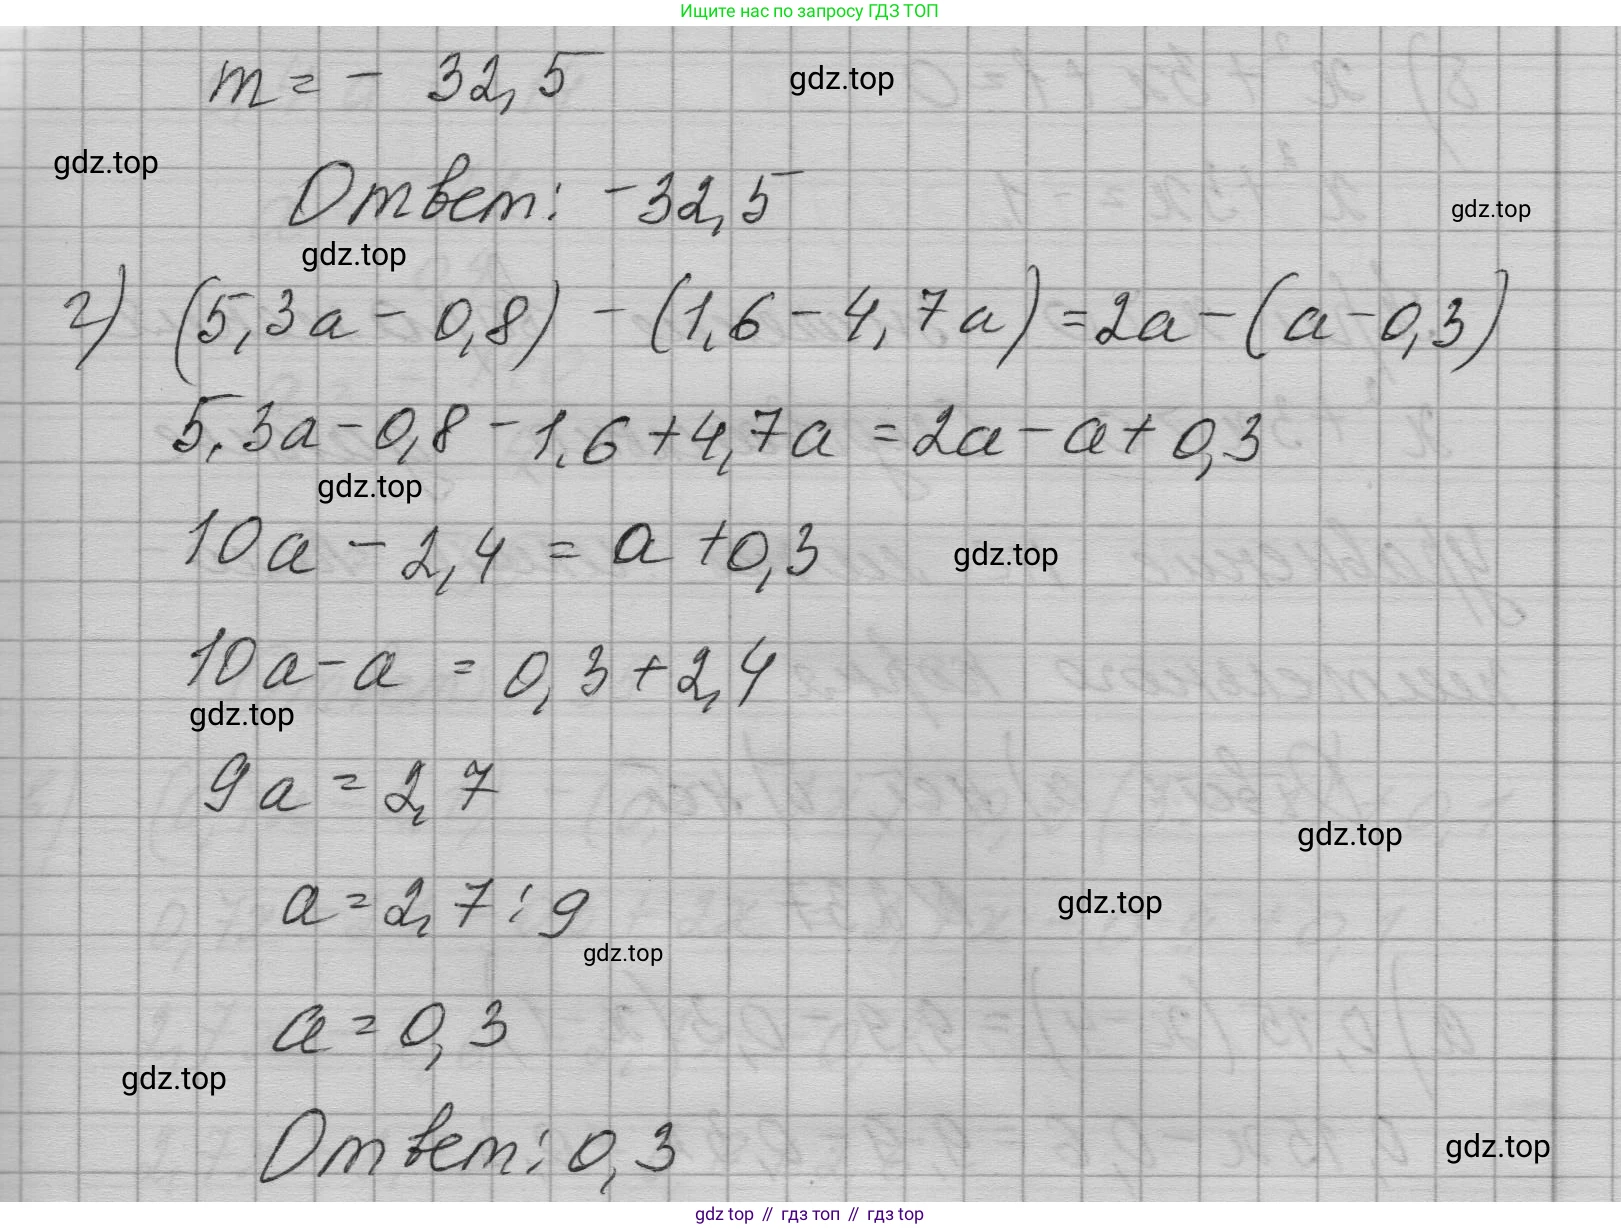 Ищите нас по запросу ГДЗ ТОП
m = - 32,5
gdz.top
gdz.top
Ответ: -32,5
gdz.top
gdz.top
г) (5,3a - 0,8) - (1,6 - 4,7a) = 2a - (a - 0,3)
5,3a - 0,8 - 1,6 + 4,7a = 2a - a + 0,3
gdz.top
10a - 2,4 = a + 0,3
gdz.top
10a - a = 0,3 + 2,4
gdz.top
9a = 2,7
gdz.top
a = 2,7 : 9
gdz.top
gdz.top
a = 0,3
gdz.top
Ответ: 0,3
gdz.top
gdz top // гдз топ // гдз top